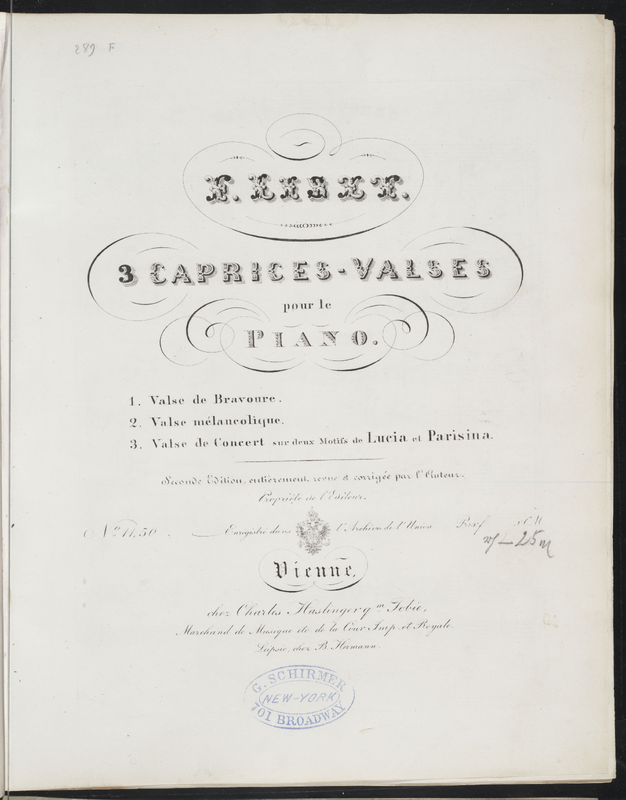 289 F
F. LISZT.
3 CAPRICES-VALSES
pour le
PIANO.
1. Valse de Bravoure.
2. Valse mélancolique.
3. Valse de Concert sur deux Motifs de Lucia et Parisina.
Seconde Edition, entièrement revue et corrigée par l'Auteur.
Propriété de l'Editeur.
Enregistré dans l'Archive de l'Union
25
Vienne,
chez Charles Haslinger qm Tobie,
Marchand de Musique etc de la Cour Imp. et Royale.
Leipsic, chez B. Hermann.
G. SCHIRMER
NEW-YORK
701 BROADWAY